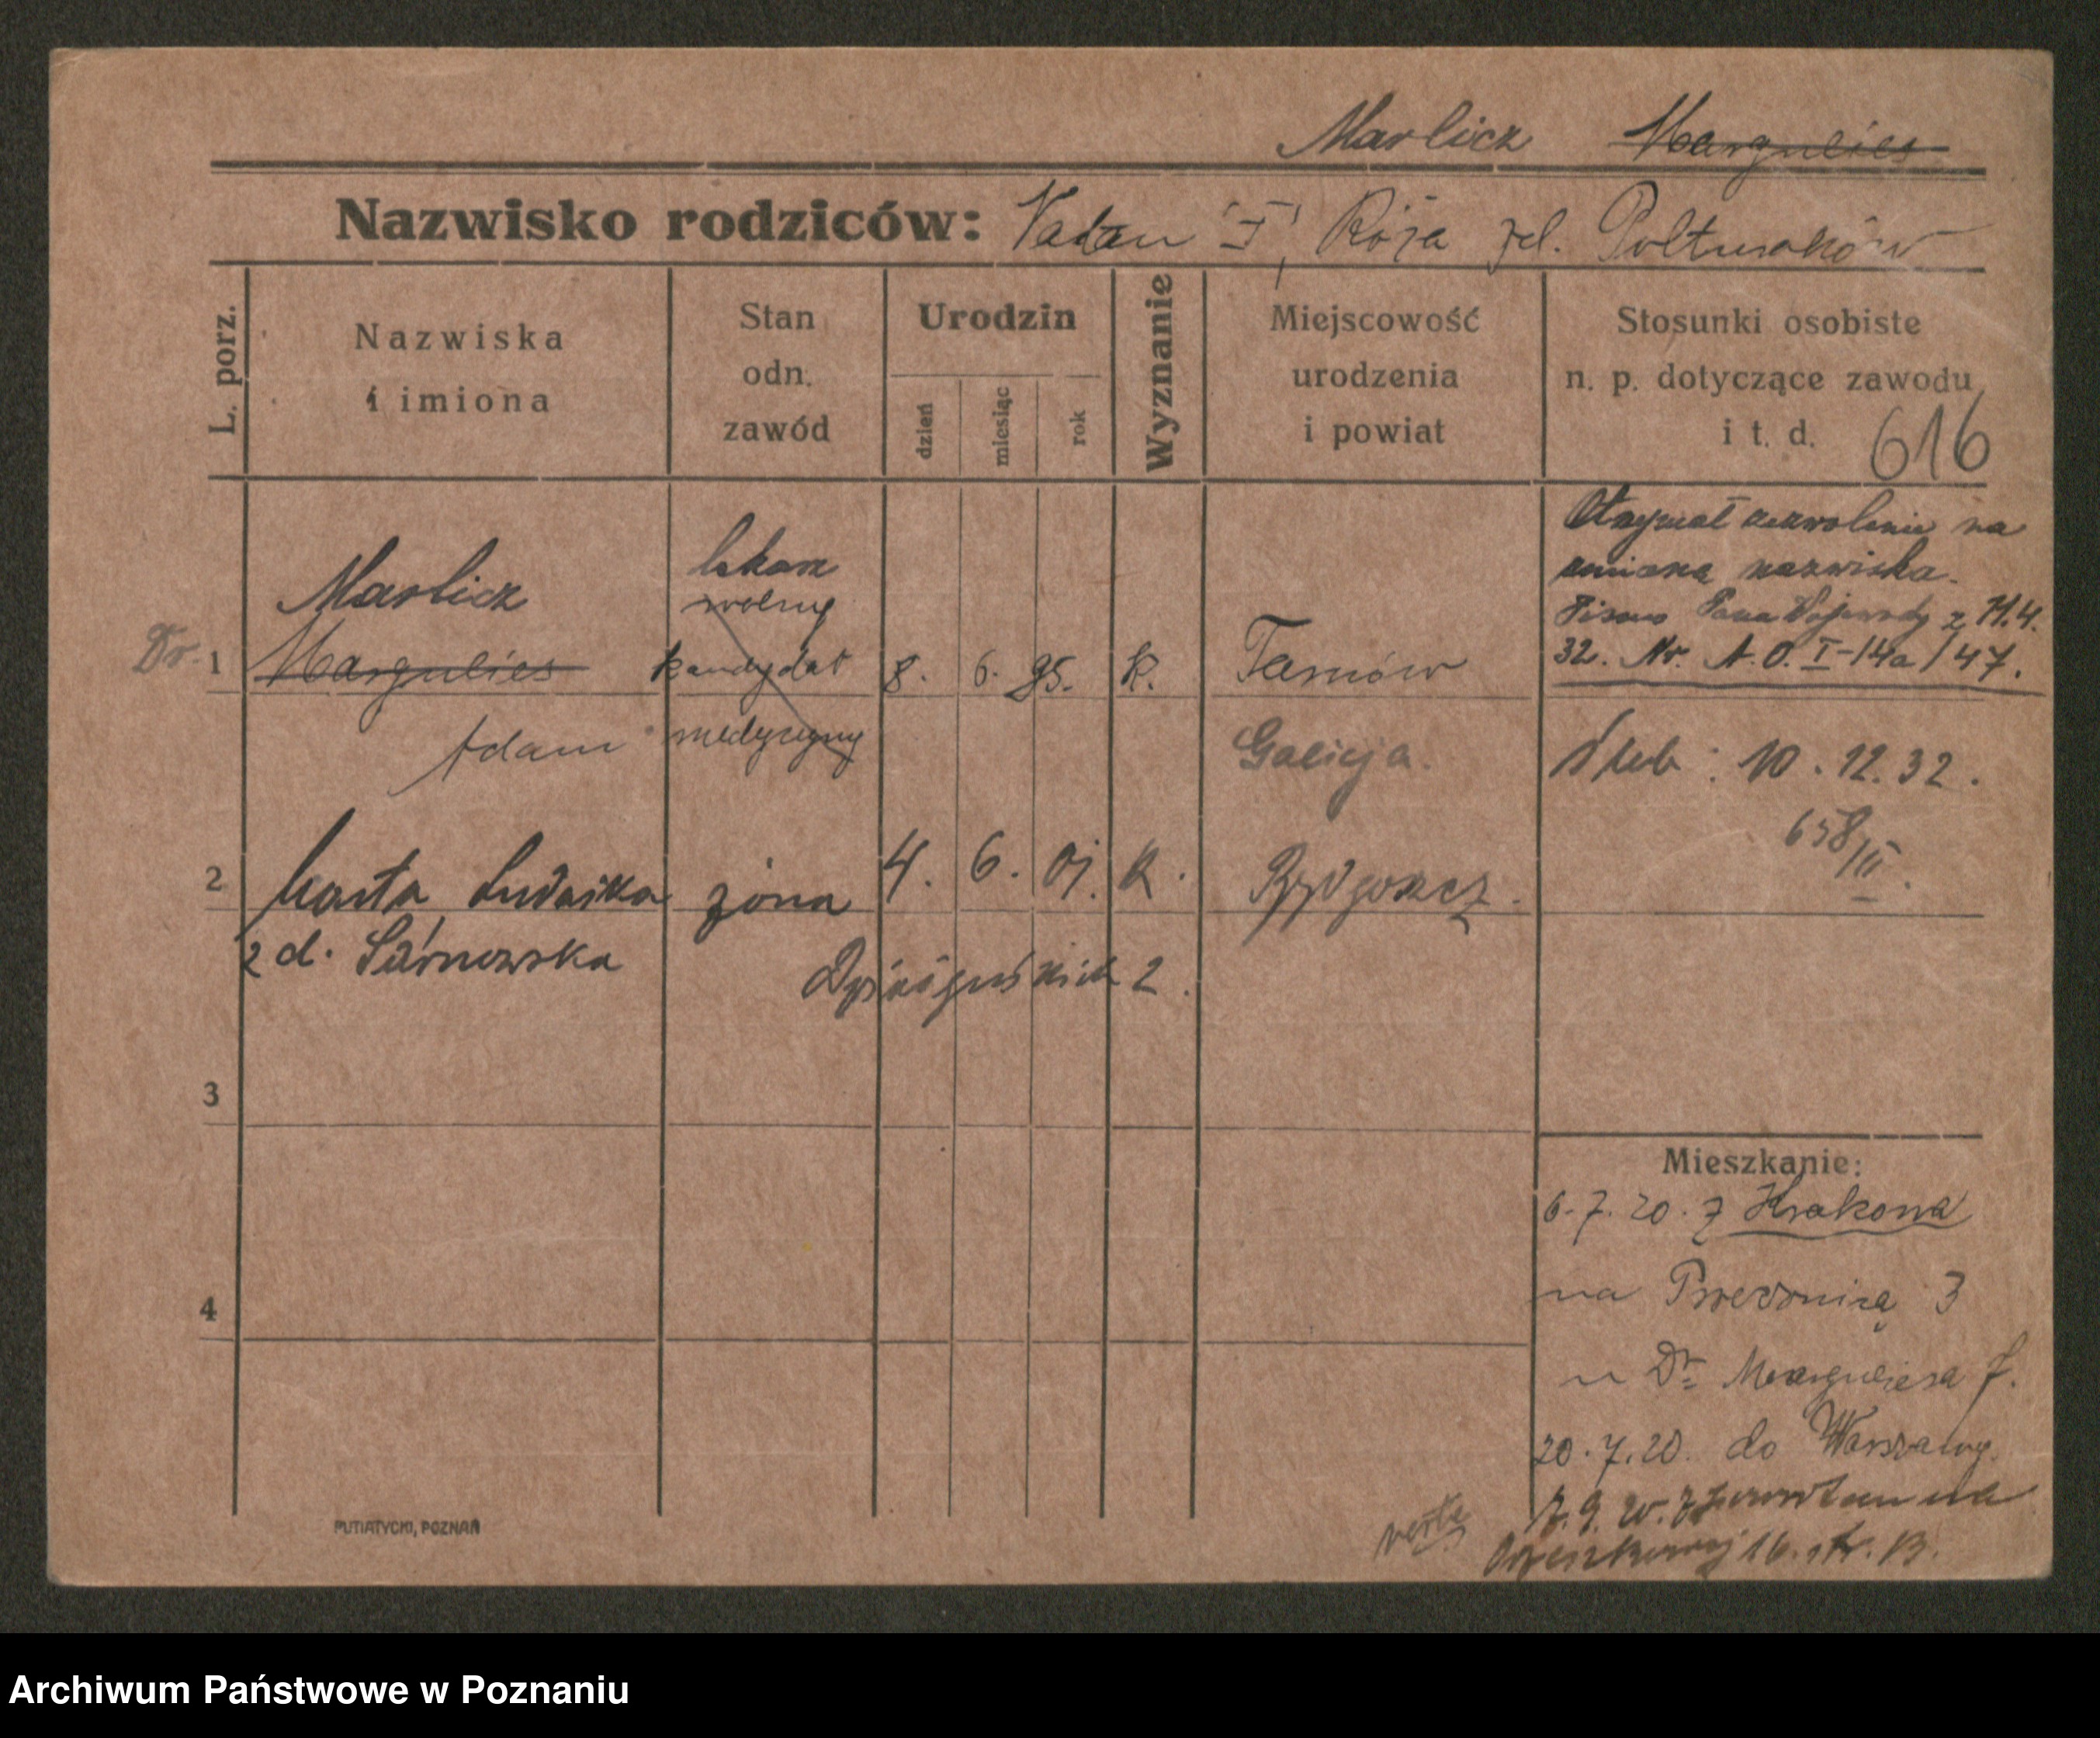 Marlicz Margulies
Nazwisko rodziców: Natan i Róża zd. Połturaków
L. porz.
Nazwiska
i imiona
Stan
odn.
zawód
Urodzin
dzień
miesiąc
rok
Wyznanie
Miejscowość
urodzenia
i powiat
Stosunki osobiste
n. p. dotyczące zawodu
i t. d. 616
Dr. 1
Marlicz
Margulies
Adam
lekarz
wolny
kandydat
medycyny
8. 6. 95. K.
Tarnów
Galicja.
Otrzymał zezwolenie na
zmianę nazwiska.
Pismo Pana Wojewody z 11.4.
32. Nr. A. O. I-14a/47.
Ślub: 10.12.32.
658/III.
2 Marta Ludwika żona 4. 6. 01. K. Bydgoszcz.
z d. Sarnowska
2.
3
4
Mieszkanie:
6.7.20. z Krakowa
na 3
u Dr Marguliesa J.
20.7.20. do Warszawy
7.9.20. z powrotem na
Orzeszkowej 16. ptr. B.
verte
PUTIATYCKI, POZNAŃ
Archiwum Państwowe w Poznaniu